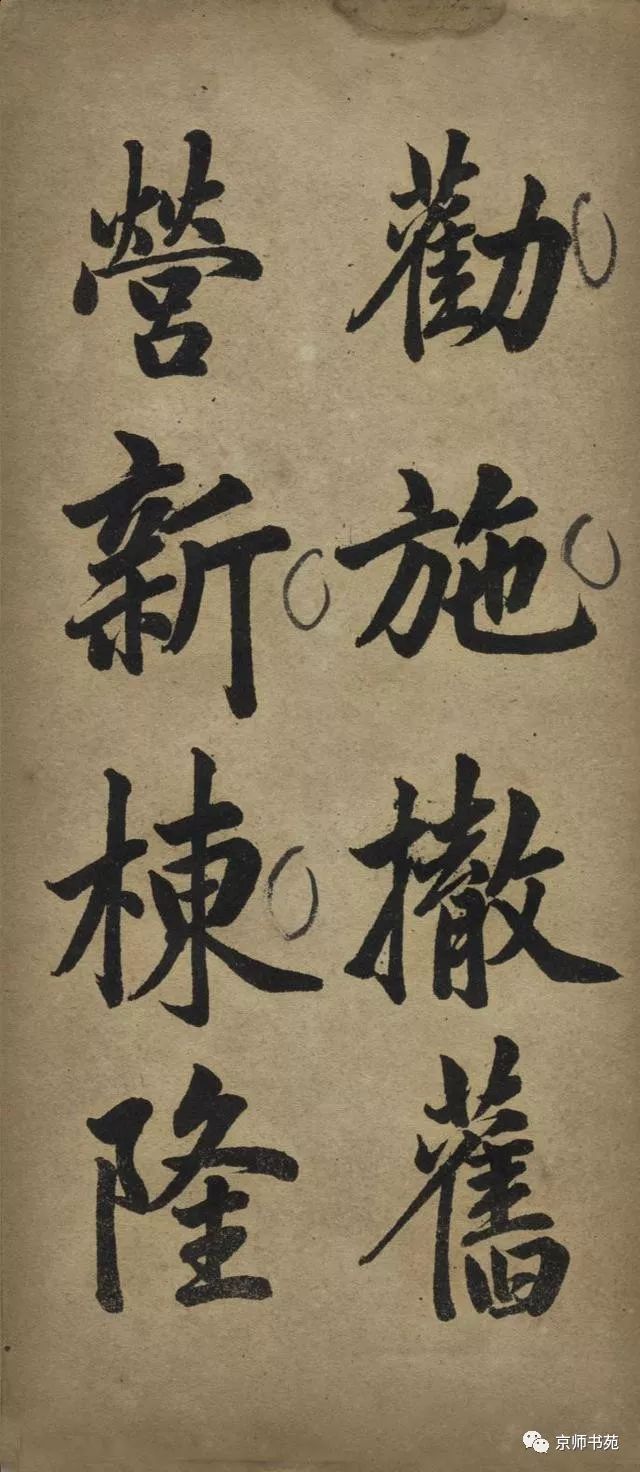 勸施撤舊
營新棟隆
京师书苑